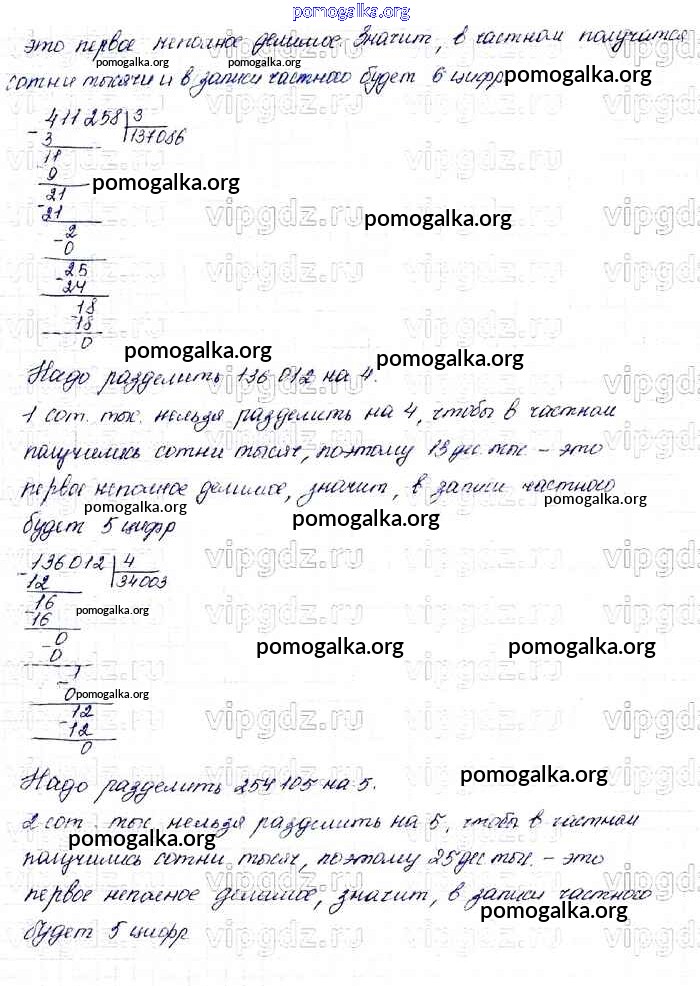 pomogalka.org
это первое неполное делимое. Значит, в частном получатся
pomogalka.org pomogalka.org
сотни тысячи и в записи частного будет 6 цифр
pomogalka.org
411258 3
- 3 137086
11
- 9
pomogalka.org
21
- 21
pomogalka.org
2
- 0
25
- 24
18
- 18
0
pomogalka.org
pomogalka.org
Надо разделить 136012 на 4.
1 сот. тыс. нельзя разделить на 4, чтобы в частном
получились сотни тысяч, поэтому 13 дес. тыс. – это
первое неполное делимое, значит, в записи частного
pomogalka.org pomogalka.org pomogalka.org
будет 5 цифр
136012 4
- 12 34003
16
- 16
pomogalka.org
0
- 0
pomogalka.org pomogalka.org
1
- 0
pomogalka.org
12
- 12
0
Надо разделить 254105 на 5.
pomogalka.org
2 сот. тыс. нельзя разделить на 5, чтобы в частном
pomogalka.org
получились сотни тысяч, поэтому 25 дес. тыс. – это
первое неполное делимое, значит, в записи частного
pomogalka.org
будет 5 цифр
vipgdz.ru